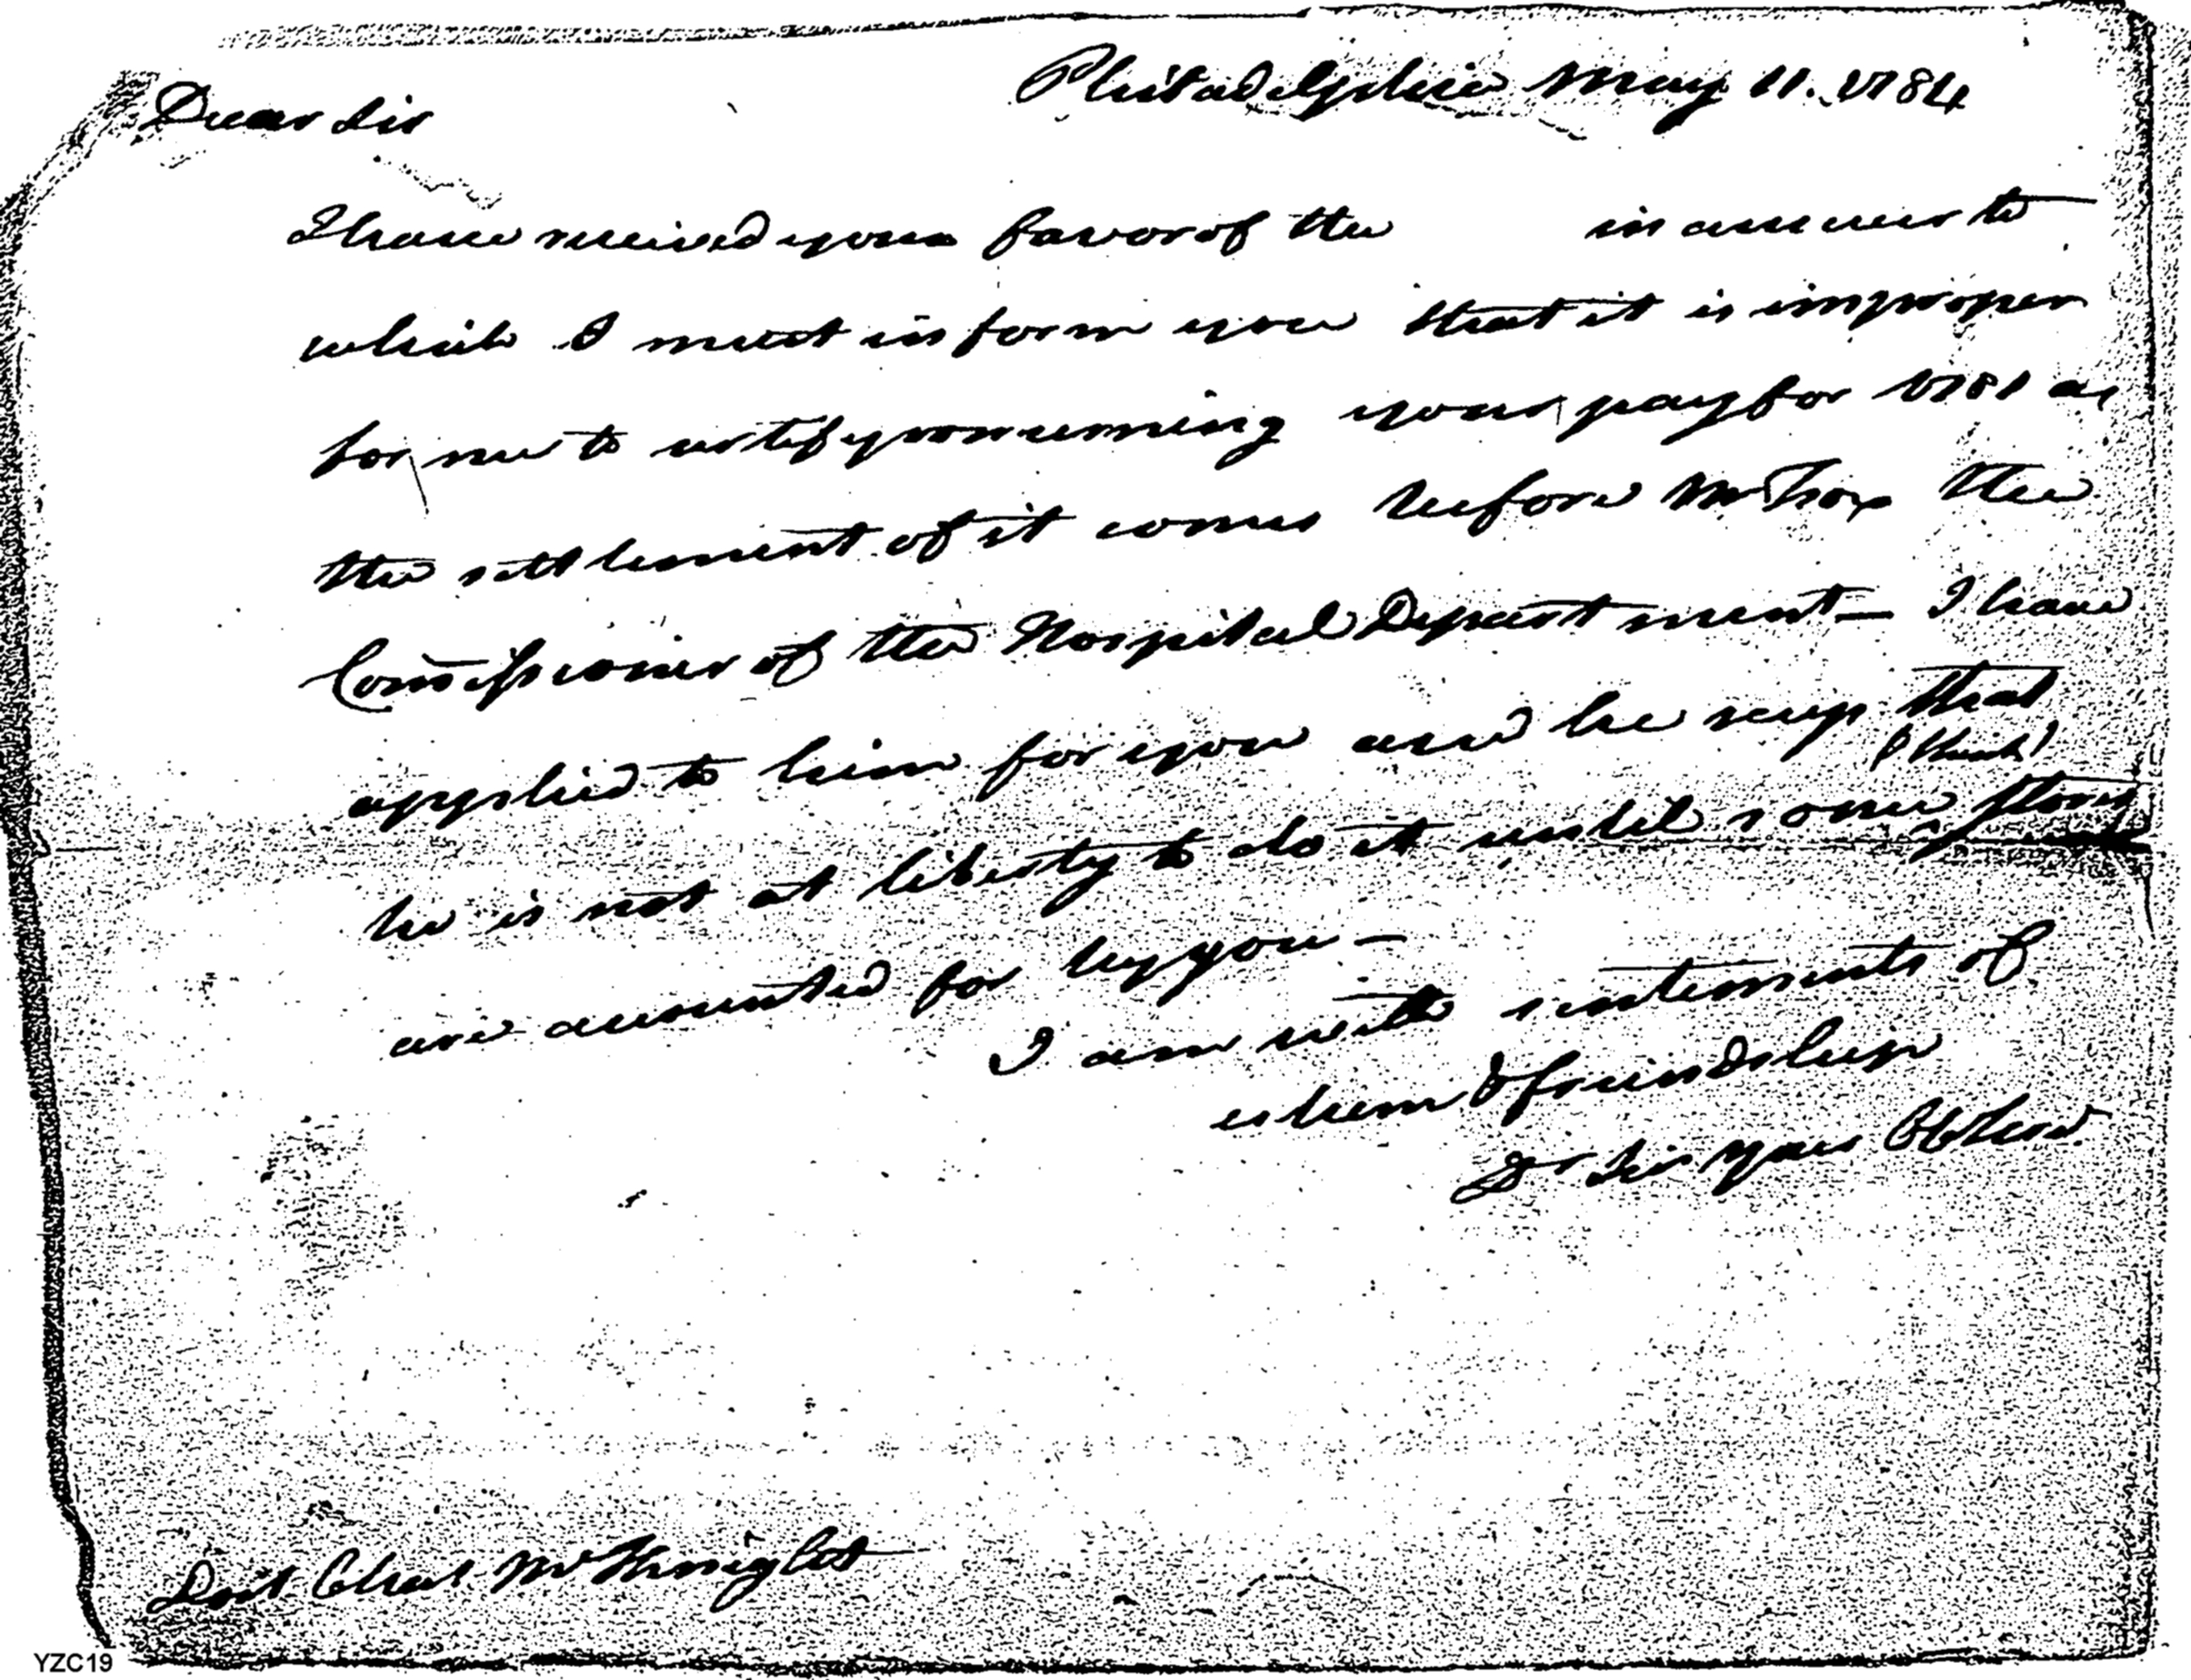 Philadelphia May 11. 1784
Dear Sir
I have received your favor of the in answer to
which I must inform you that it is improper
for me to certify concerning your pay for 1781 as
the settlement of it comes before Mr Fox the
Com̄issioner of the Hospital Department — I have
applied to him for you and he says that
(I think)
he is not at liberty to do it until some stores
are accounted for by you —
I am with sentiments of
esteem & friendship
Dr Sir Your Obt
Doct Chas McKnight
YZC19